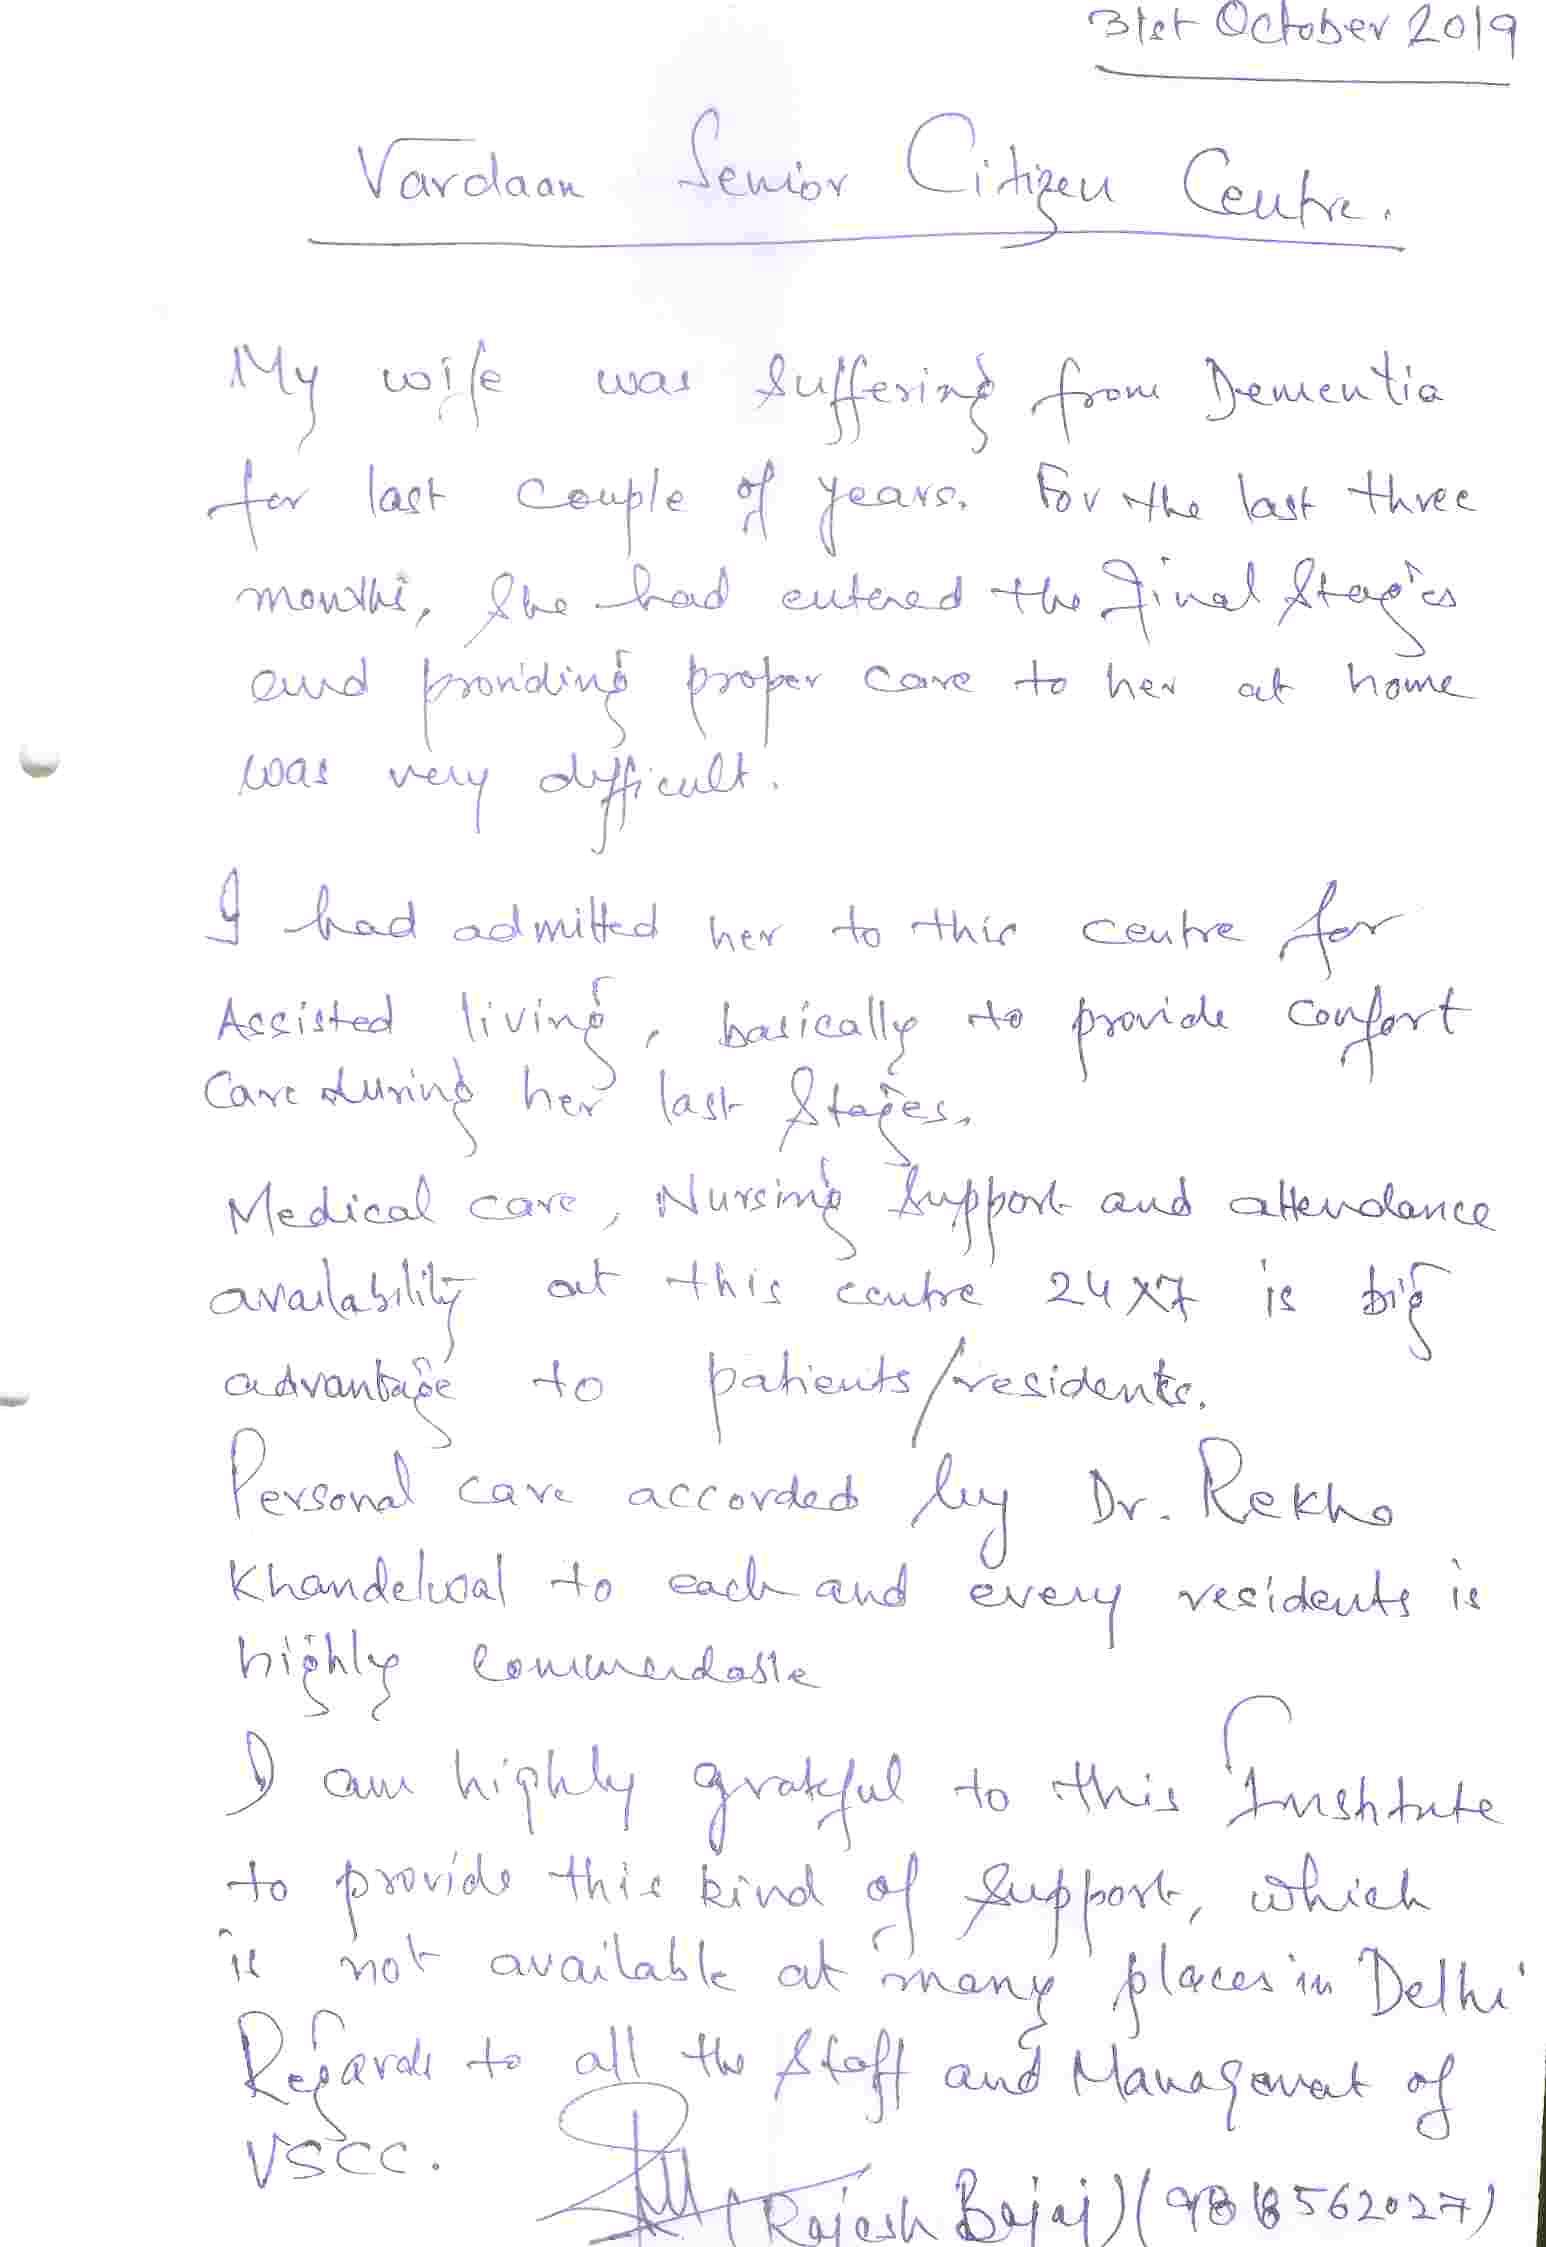 31st October 2019
Vardaan Senior Citizen Centre.
My wife was suffering from Dementia
for last couple of years. For the last three
months, she had entered the final stages
and providing proper care to her at home
was very difficult.
I had admitted her to this centre for
Assisted living, basically to provide comfort
care during her last stages.
Medical care, Nursing support and attendance
availability at this centre 24x7 is big
advantage to patients/residents.
Personal care accorded by Dr. Rekha
Khandelwal to each and every residents is
highly commendable
I am highly grateful to this Institute
to provide this kind of support, which
is not available at many places in Delhi
Regards to all the staff and Management of
VSCC.
(Rajesh Bajaj) (9818562027)